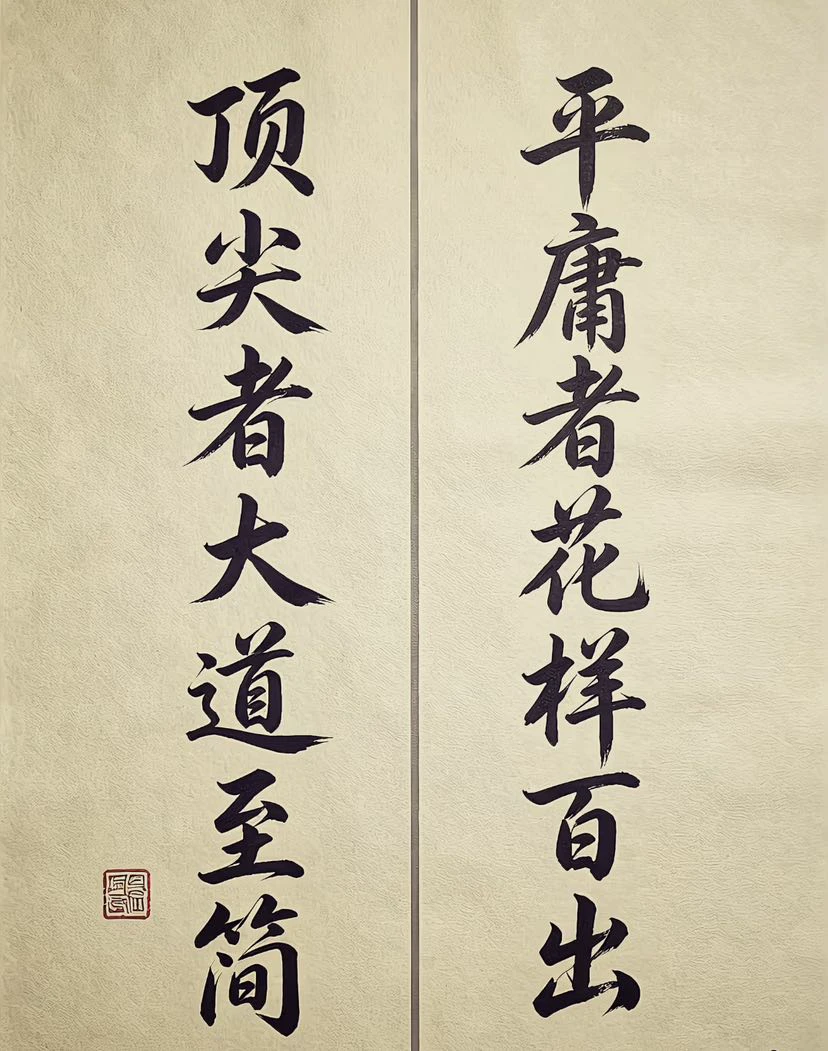 平庸者花样百出
顶尖者大道至简